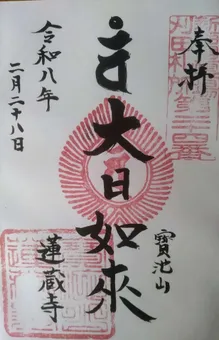 奉拝
大日如来
寳池山
蓮蔵寺
令和八年
二月二十八日